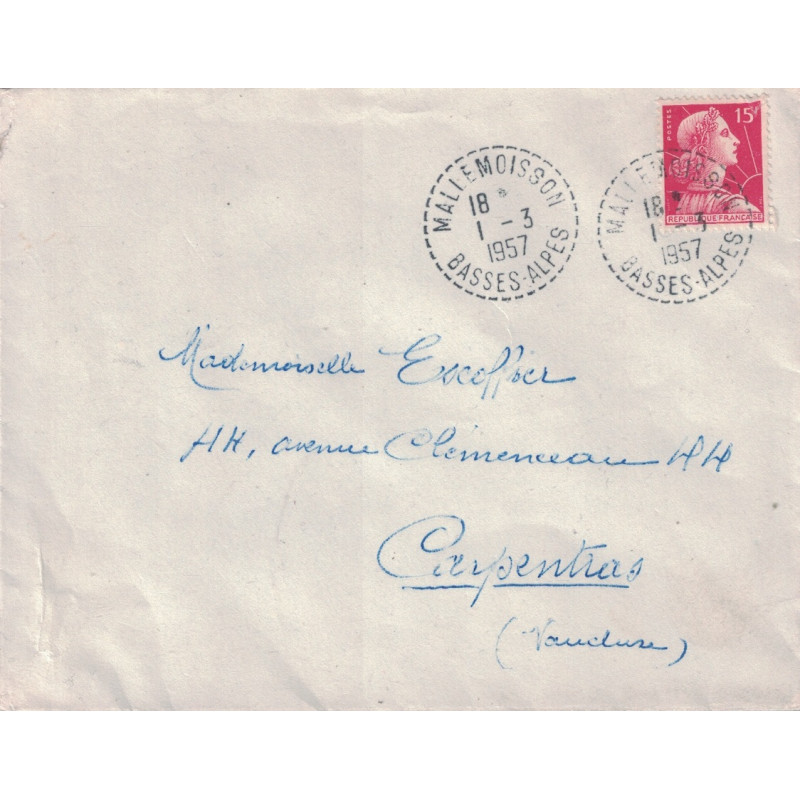 POSTES
15F
REPUBLIQUE FRANÇAISE
MALLEMOISSON
18 *
1 - 3
1957
BASSES-ALPES
MALLEMOISSON
18 *
1 - 3
1957
BASSES-ALPES
Mademoiselle Escoffier
44, avenue Clémenceau 44
Carpentras
(Vaucluse)